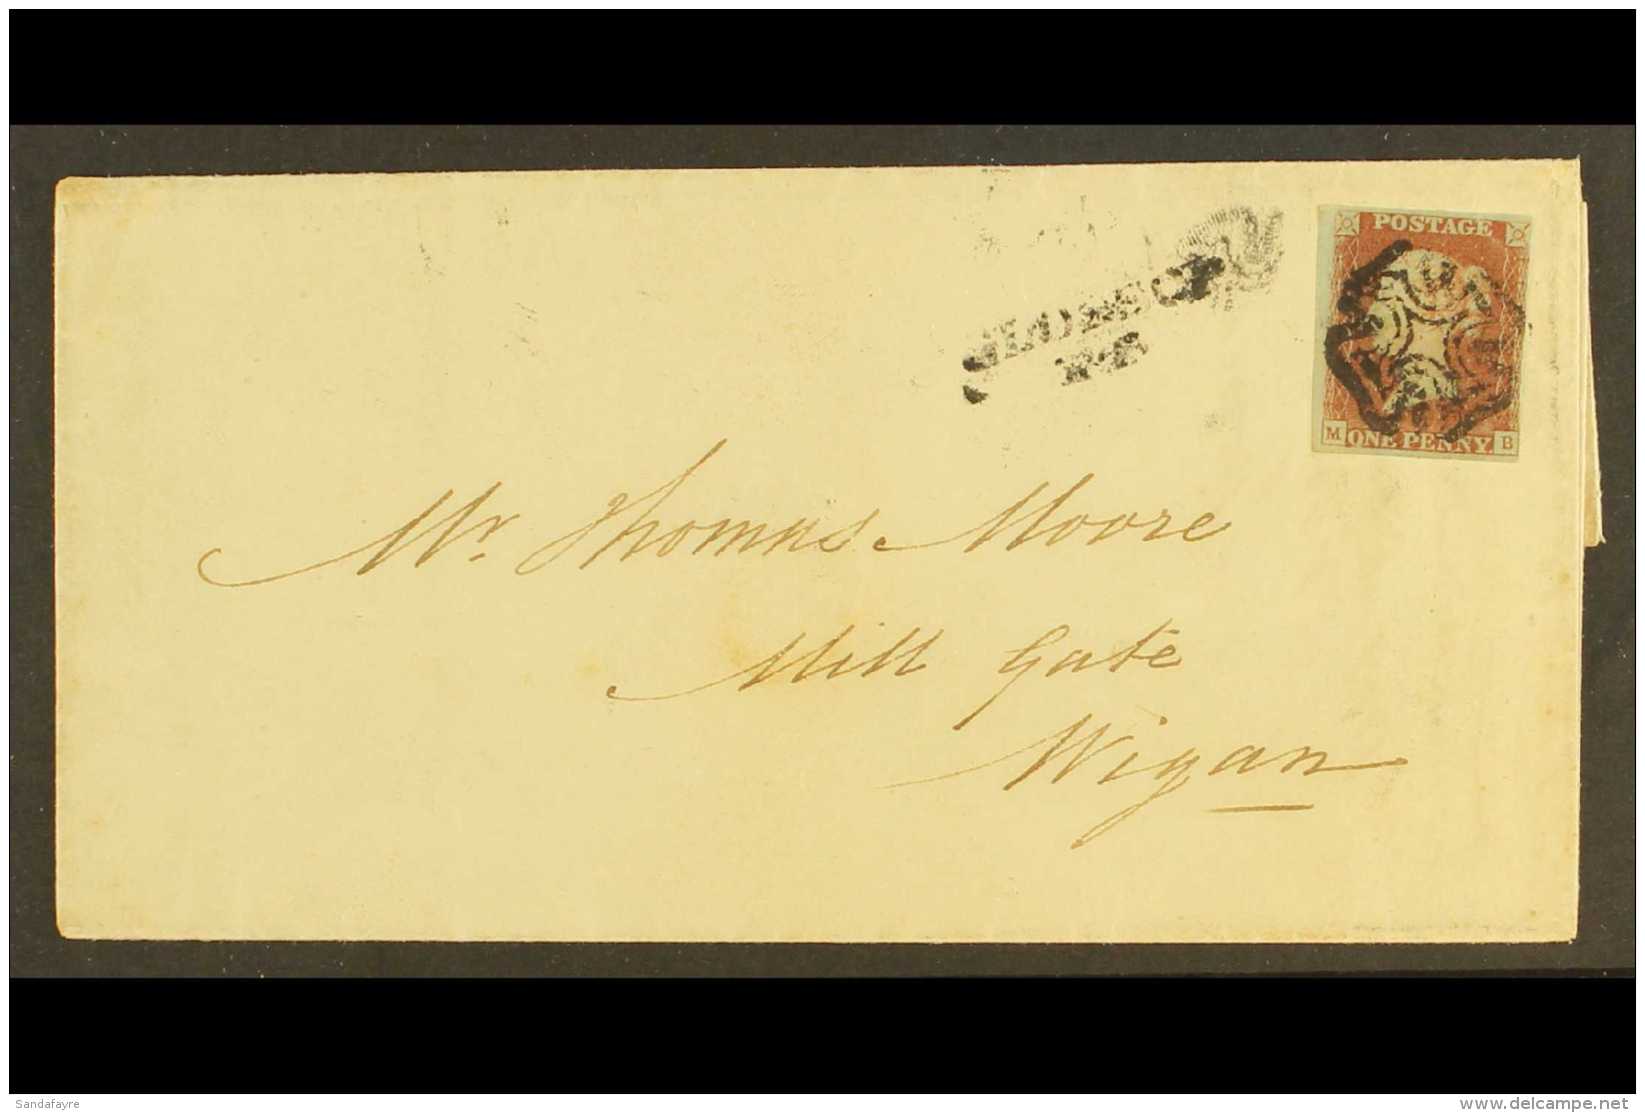 POSTAGE
M ONE PENNY. B
Mr. Thomas Moore
Mill Gate
Wigan
Sandafayre
delcampe.net